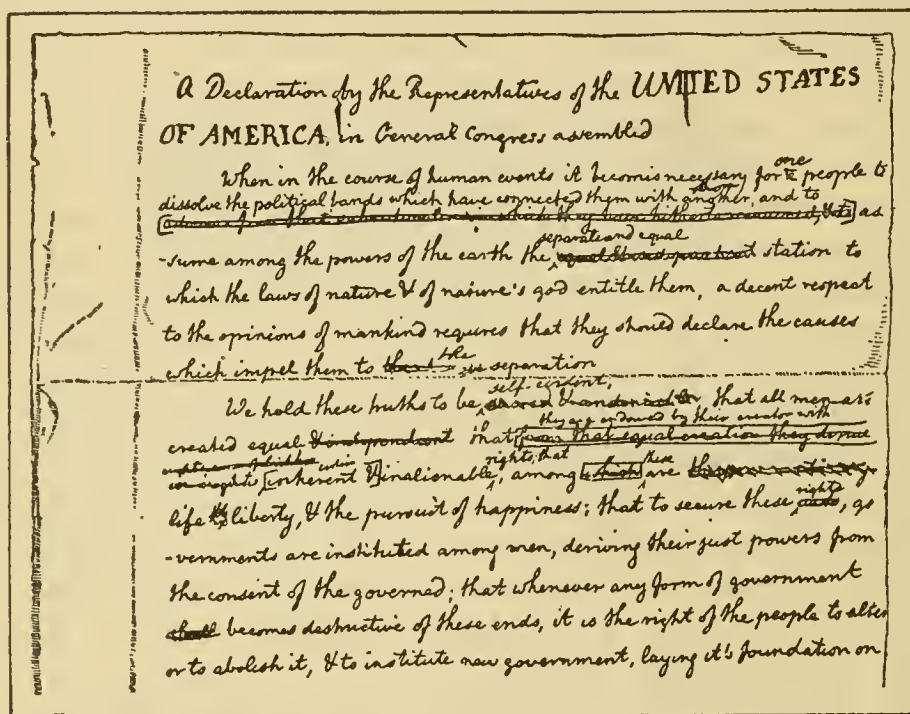 A Declaration by the Representatives of the UNITED STATES
OF AMERICA, in General Congress assembled
When in the course of human events it becomes necessary for one people to
dissolve the political bands which have connected them with another, and to
as
-sume among the powers of the earth the separate and equal station to
which the laws of nature & of nature's god entitle them, a decent respect
to the opinions of mankind requires that they should declare the causes
which impel them to the separation
We hold these truths to be self-evident, that all men are
they are endowed by their creator with
created equal & independent that from that equal creation they derive
rights, that these
inherent & inalienable, among which are
life & liberty, & the pursuit of happiness; that to secure these rights, go
-vernments are instituted among men, deriving their just powers from
the consent of the governed; that whenever any form of government
shall becomes destructive of these ends, it is the right of the people to alter
or to abolish it, & to institute new government, laying it's foundation on